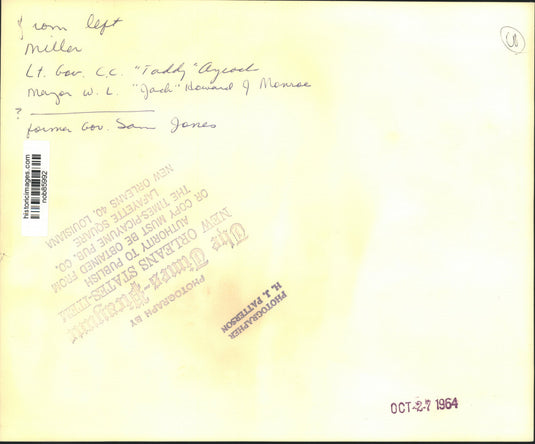 from left
Miller
Lt. Gov. C.C. "Taddy" Aycock
Mayor W. L. "Jack" Howard of Monroe
?
former Gov. Sam Jones
historicimages.com
nob85992
PHOTOGRAPH BY
The Times-Picayune
NEW ORLEANS STATES-ITEM
AUTHORITY TO PUBLISH
OR COPY MUST BE OBTAINED FROM
THE TIMES-PICAYUNE PUB. CO.
LAFAYETTE SQUARE
NEW ORLEANS 40, LOUISIANA
PHOTOGRAPHER
H. J. PATTERSON
OCT-27 1964